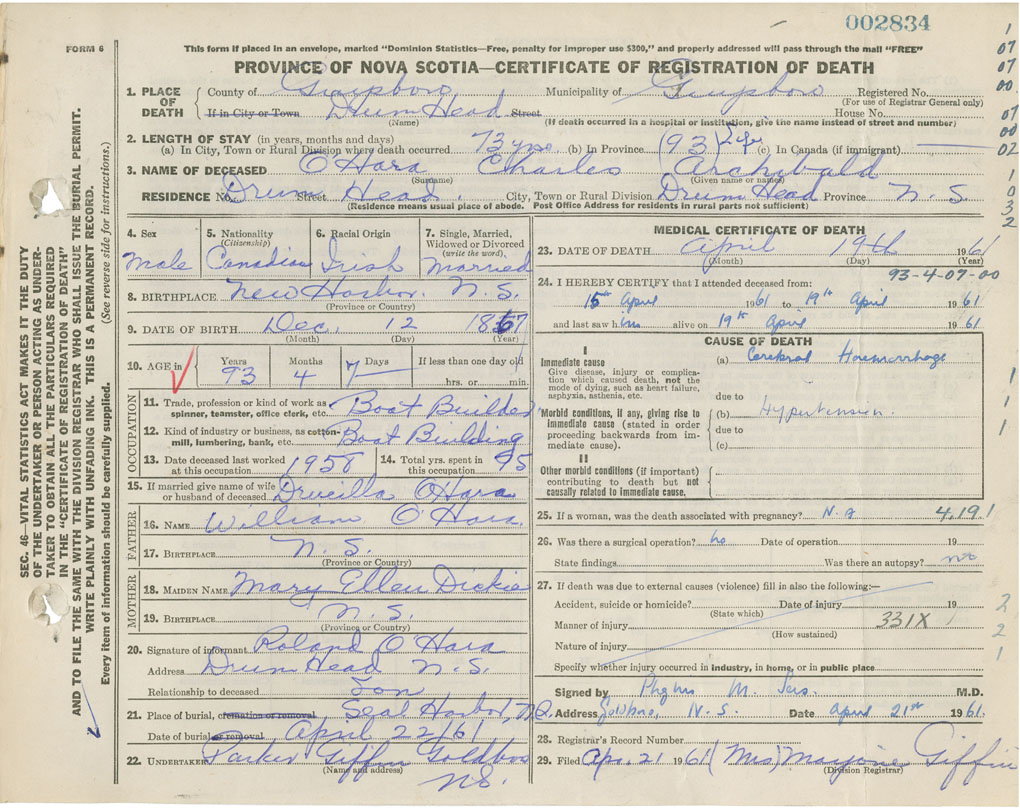 002834
FORM 6
This form if placed in an envelope, marked "Dominion Statistics—Free, penalty for improper use $300," and properly addressed will pass through the mail "FREE"
PROVINCE OF NOVA SCOTIA—CERTIFICATE OF REGISTRATION OF DEATH
SEC. 46—VITAL STATISTICS ACT MAKES IT THE DUTY
OF THE UNDERTAKER OR PERSON ACTING AS UNDER-
TAKER TO OBTAIN ALL THE PARTICULARS REQUIRED
IN THE "CERTIFICATE OF REGISTRATION OF DEATH"
AND TO FILE THE SAME WITH THE DIVISION REGISTRAR WHO SHALL ISSUE THE BURIAL PERMIT.
WRITE PLAINLY WITH UNFADING INK. THIS IS A PERMANENT RECORD.
Every item of information should be carefully supplied. (See reverse side for instructions.)
1. PLACE OF DEATH County of Guysboro Municipality of Guysboro Registered No.
(For use of Registrar General only)
If in City or Town Drum Head Street House No.
(Name) (If death occurred in a hospital or institution, give the name instead of street and number)
2. LENGTH OF STAY (in years, months and days)
(a) In City, Town or Rural Division where death occurred 73 yrs (b) In Province (93) Life (c) In Canada (if immigrant)
3. NAME OF DECEASED O'Hara Charles Archibald
(Surname) (Given name or names)
RESIDENCE No. Drum Head. Street City, Town or Rural Division Drum Head Province N.S.
(Residence means usual place of abode. Post Office Address for residents in rural parts not sufficient)
4. Sex
Male
5. Nationality
(Citizenship)
Canadian
6. Racial Origin
Irish
7. Single, Married,
Widowed or Divorced
(write the word)
Married
8. BIRTHPLACE New Harbor. N.S.
(Province or Country)
9. DATE OF BIRTH Dec. 12 1867
(Month) (Day) (Year)
10. AGE in Years 93 Months 4 Days 7 If less than one day old
hrs. or min.
OCCUPATION
11. Trade, profession or kind of work as
spinner, teamster, office clerk, etc. Boat Builder
12. Kind of industry or business, as cotton-
mill, lumbering, bank, etc. Boat Building
13. Date deceased last worked
at this occupation 1958
14. Total yrs. spent in
this occupation 75
15. If married give name of wife
or husband of deceased Drucilla O'Hara
FATHER
16. NAME William O'Hara.
17. BIRTHPLACE N.S.
(Province or Country)
MOTHER
18. MAIDEN NAME Mary Ellen Dickie
19. BIRTHPLACE N.S.
(Province or Country)
20. Signature of informant Roland O'Hara
Address Drum Head N.S.
Relationship to deceased Son
21. Place of burial, cremation or removal Seal Harbor, N.S.
Date of burial or removal April 22/61
22. UNDERTAKER Parker Giffin Goldboro
(Name and address)
N.S.
MEDICAL CERTIFICATE OF DEATH
23. DATE OF DEATH April 19th 1961
(Month) (Day) (Year)
93-4-07-00
24. I HEREBY CERTIFY that I attended deceased from:
15th April 1961 to 19th April 1961
and last saw him alive on 19th April 1961
CAUSE OF DEATH
I
Immediate cause
Give disease, injury or complica-
tion which caused death, not the
mode of dying, such as heart failure,
asphyxia, asthenia, etc.
(a) Cerebral Haemorrhage
due to
Morbid conditions, if any, giving rise to
immediate cause (stated in order
proceeding backwards from im-
mediate cause).
(b) Hypertension.
due to
(c)
II
Other morbid conditions (if important)
contributing to death but not
causally related to immediate cause.
25. If a woman, was the death associated with pregnancy? N.a 4.191
26. Was there a surgical operation? no Date of operation 19
State findings Was there an autopsy? no
27. If death was due to external causes (violence) fill in also the following:—
Accident, suicide or homicide? Date of injury 19
(State which)
Manner of injury 331X
(How sustained)
Nature of injury
Specify whether injury occurred in industry, in home, or in public place
Signed by Phyllis M. M.D.
Address Goldboro, N.S. Date April 21st 1961
28. Registrar's Record Number
29. Filed Apr. 21 1961 (Mrs) Marjorie Giffin
(Division Registrar)
1
07
07
00
07
00
02
1
0
3
2
1
1
1
2
2
1